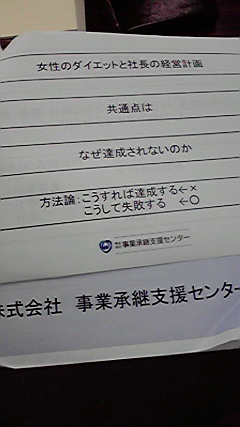 女性のダイエットと社長の経営計画
共通点は
なぜ達成されないのか
方法論：こうすれば達成する←×
こうして失敗する　←○
事業承継支援センター
株式会社　事業承継支援センター